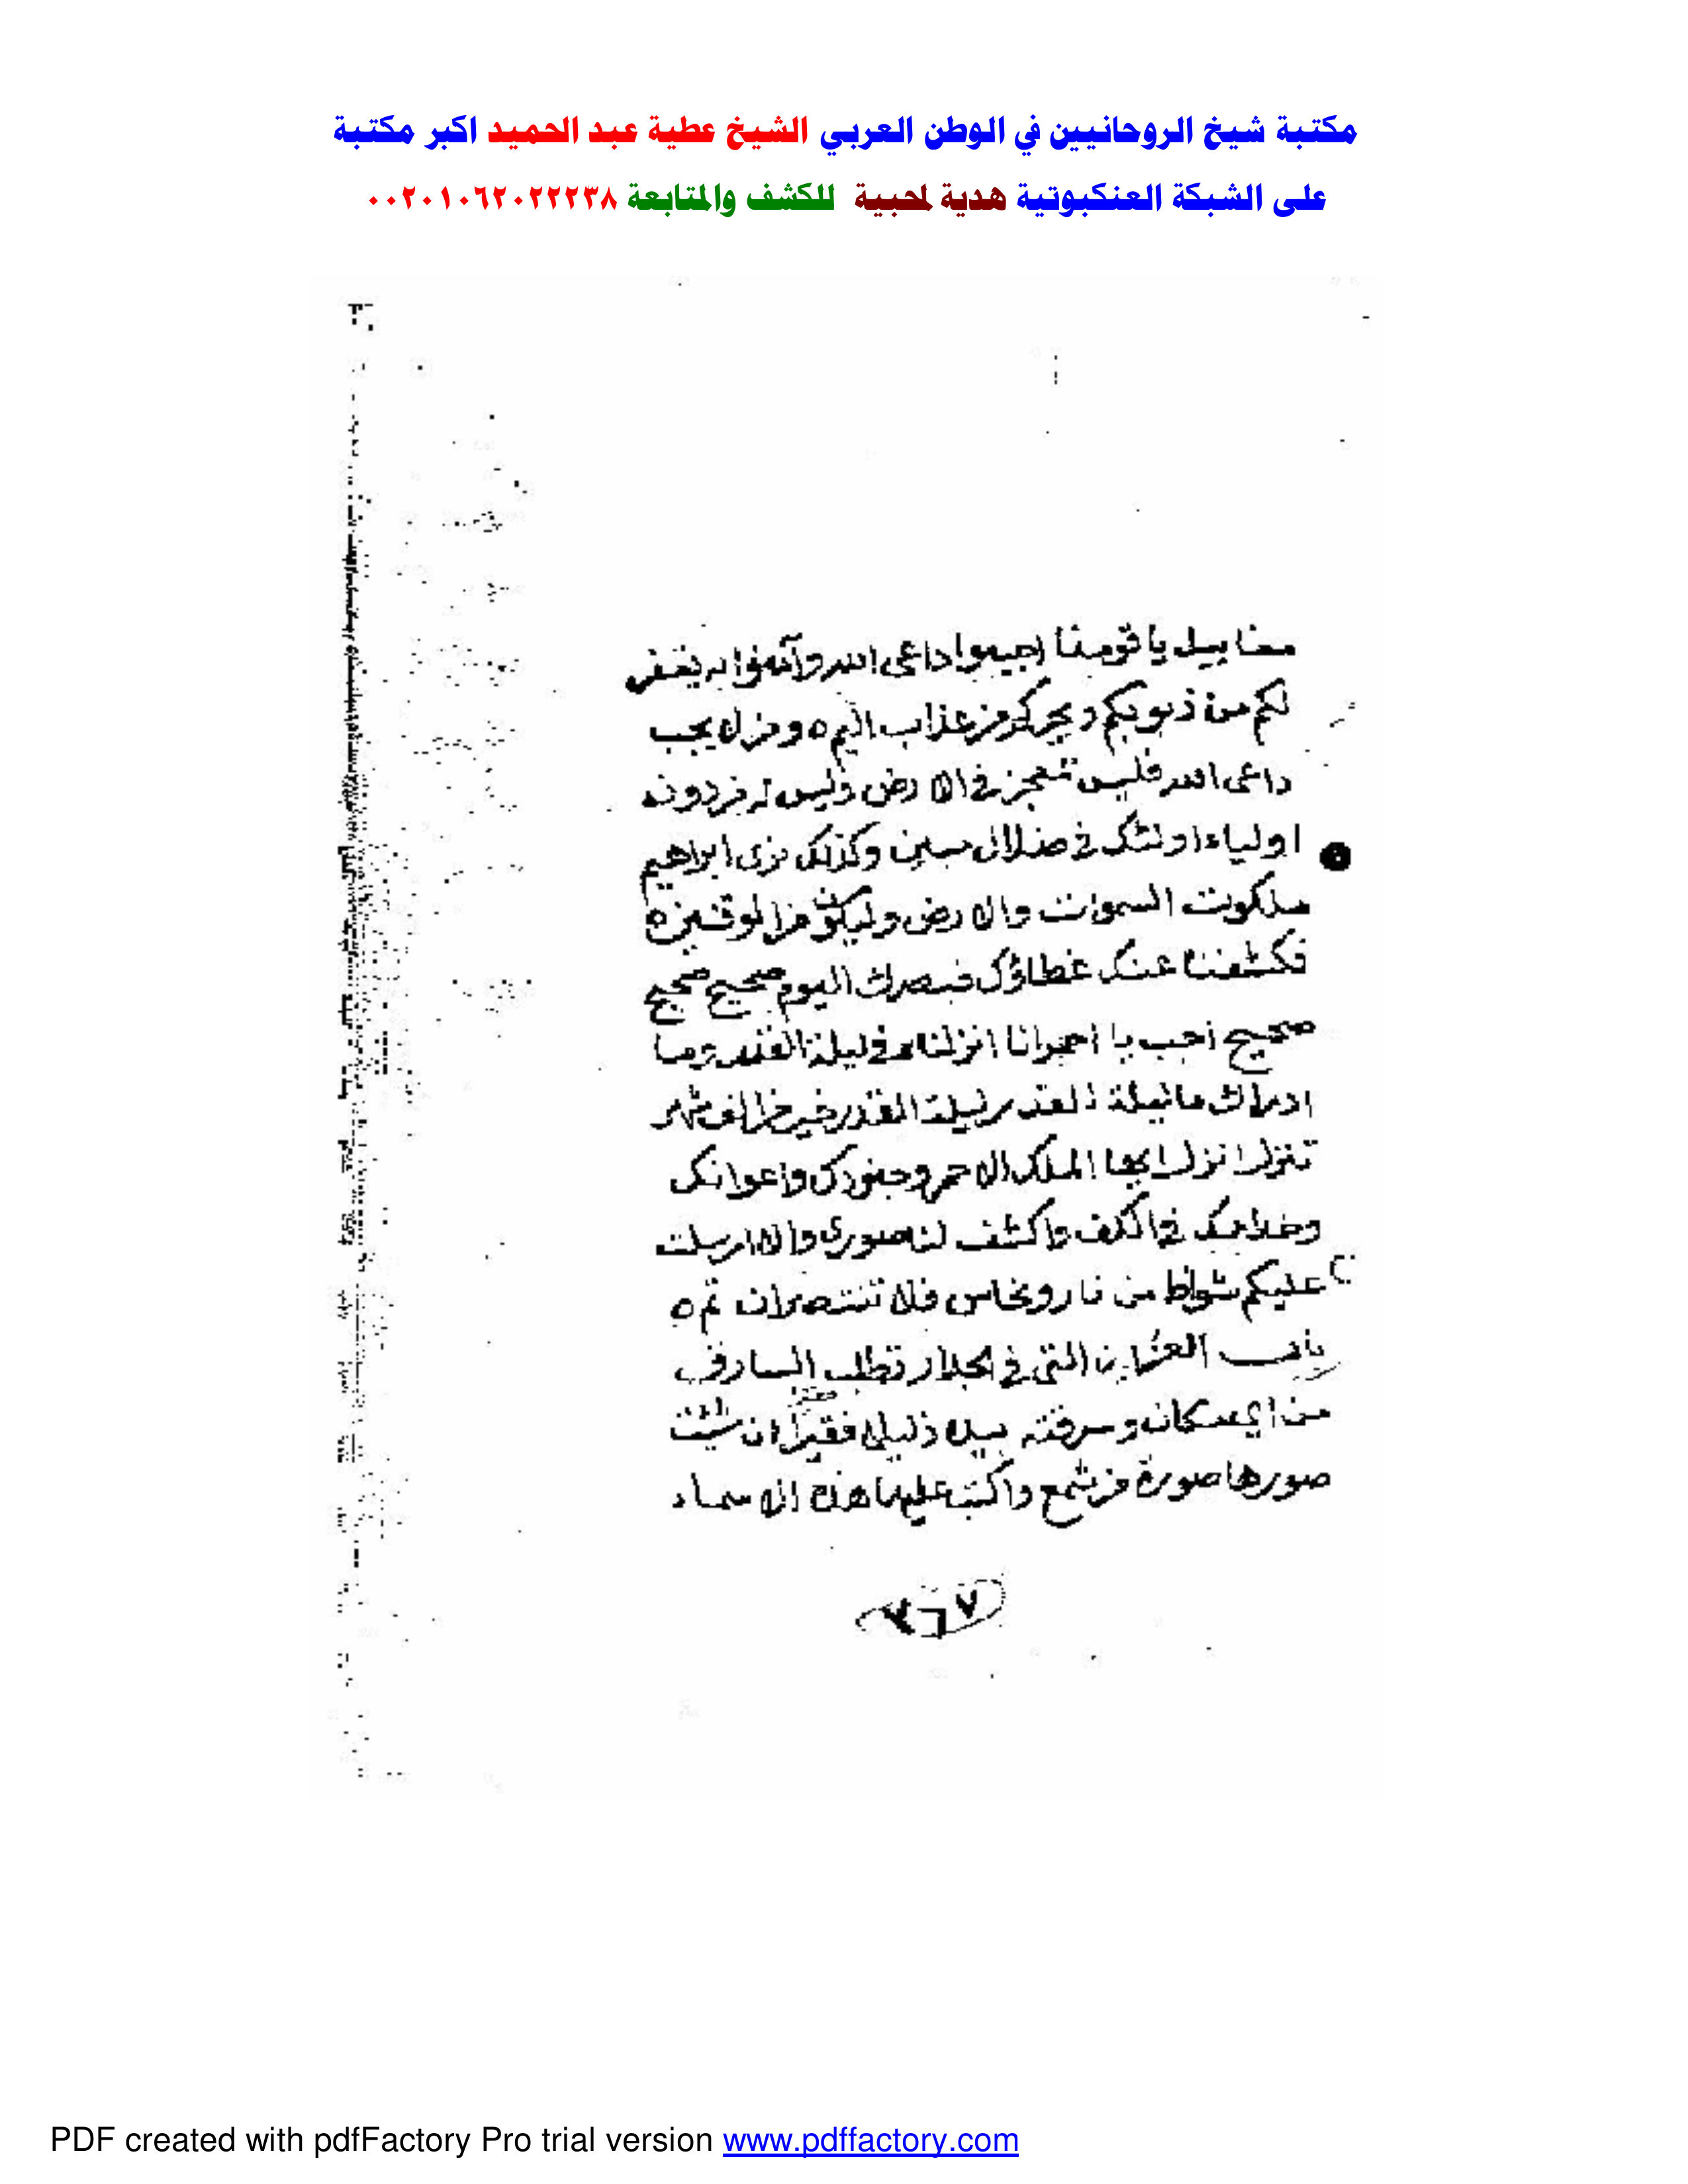 مكتبة شيخ الروحانيين في الوطن العربي الشيخ عطية عبد الحميد اكبر مكتبة
على الشبكة العنكبوتية هدية لمحبية للكشف والمتابعة ٠٠٢٠١٠٦٢٠٢٢٢٣٨
يا قومنا اجيبوا داعى الله وآمنوا به يغفر
لكم من ذنوبكم ويجركم من عذاب اليم ٥ ومن لا يجب
داعى الله فليس بمعجز فى الارض وليس له من دونه
اولياء اولئك فى ضلال مبين وكذلك نرى ابراهيم
ملكوت السموات والارض وليكون من الموقنين ٥
فكشفنا عنك غطاؤك فبصرك اليوم صحيح صحيح
صحيح اجب يا احمر انا انزلناه فى ليلة القدر وما
ادراك ما ليلة القدر ليلة القدر خير من الف شهر
تنزل انزل ايها الملك الاحمر وجنودك واعوانك
وخدامك فى الكف واكشف لنا صورى والا ارسلت
عليكم شواظ من نار ونحاس فلا تنتصران تم ٥
باب التى فى تطلب السارق
من اى مكان وسرقته ذليلا فقيرا ان شئت
صورها صورة من شمع واكتب عليها هذه الاسماء
PDF created with pdfFactory Pro trial version www.pdffactory.com